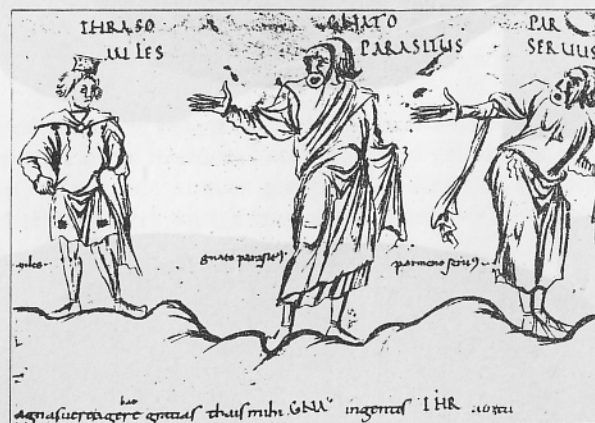 THRASO GNATO PAR
MILES PARASITUS SERUUS
miles gnato parasit' parmeno seru9
agnas uero agere gratias thais mihi GNA ingentes THR